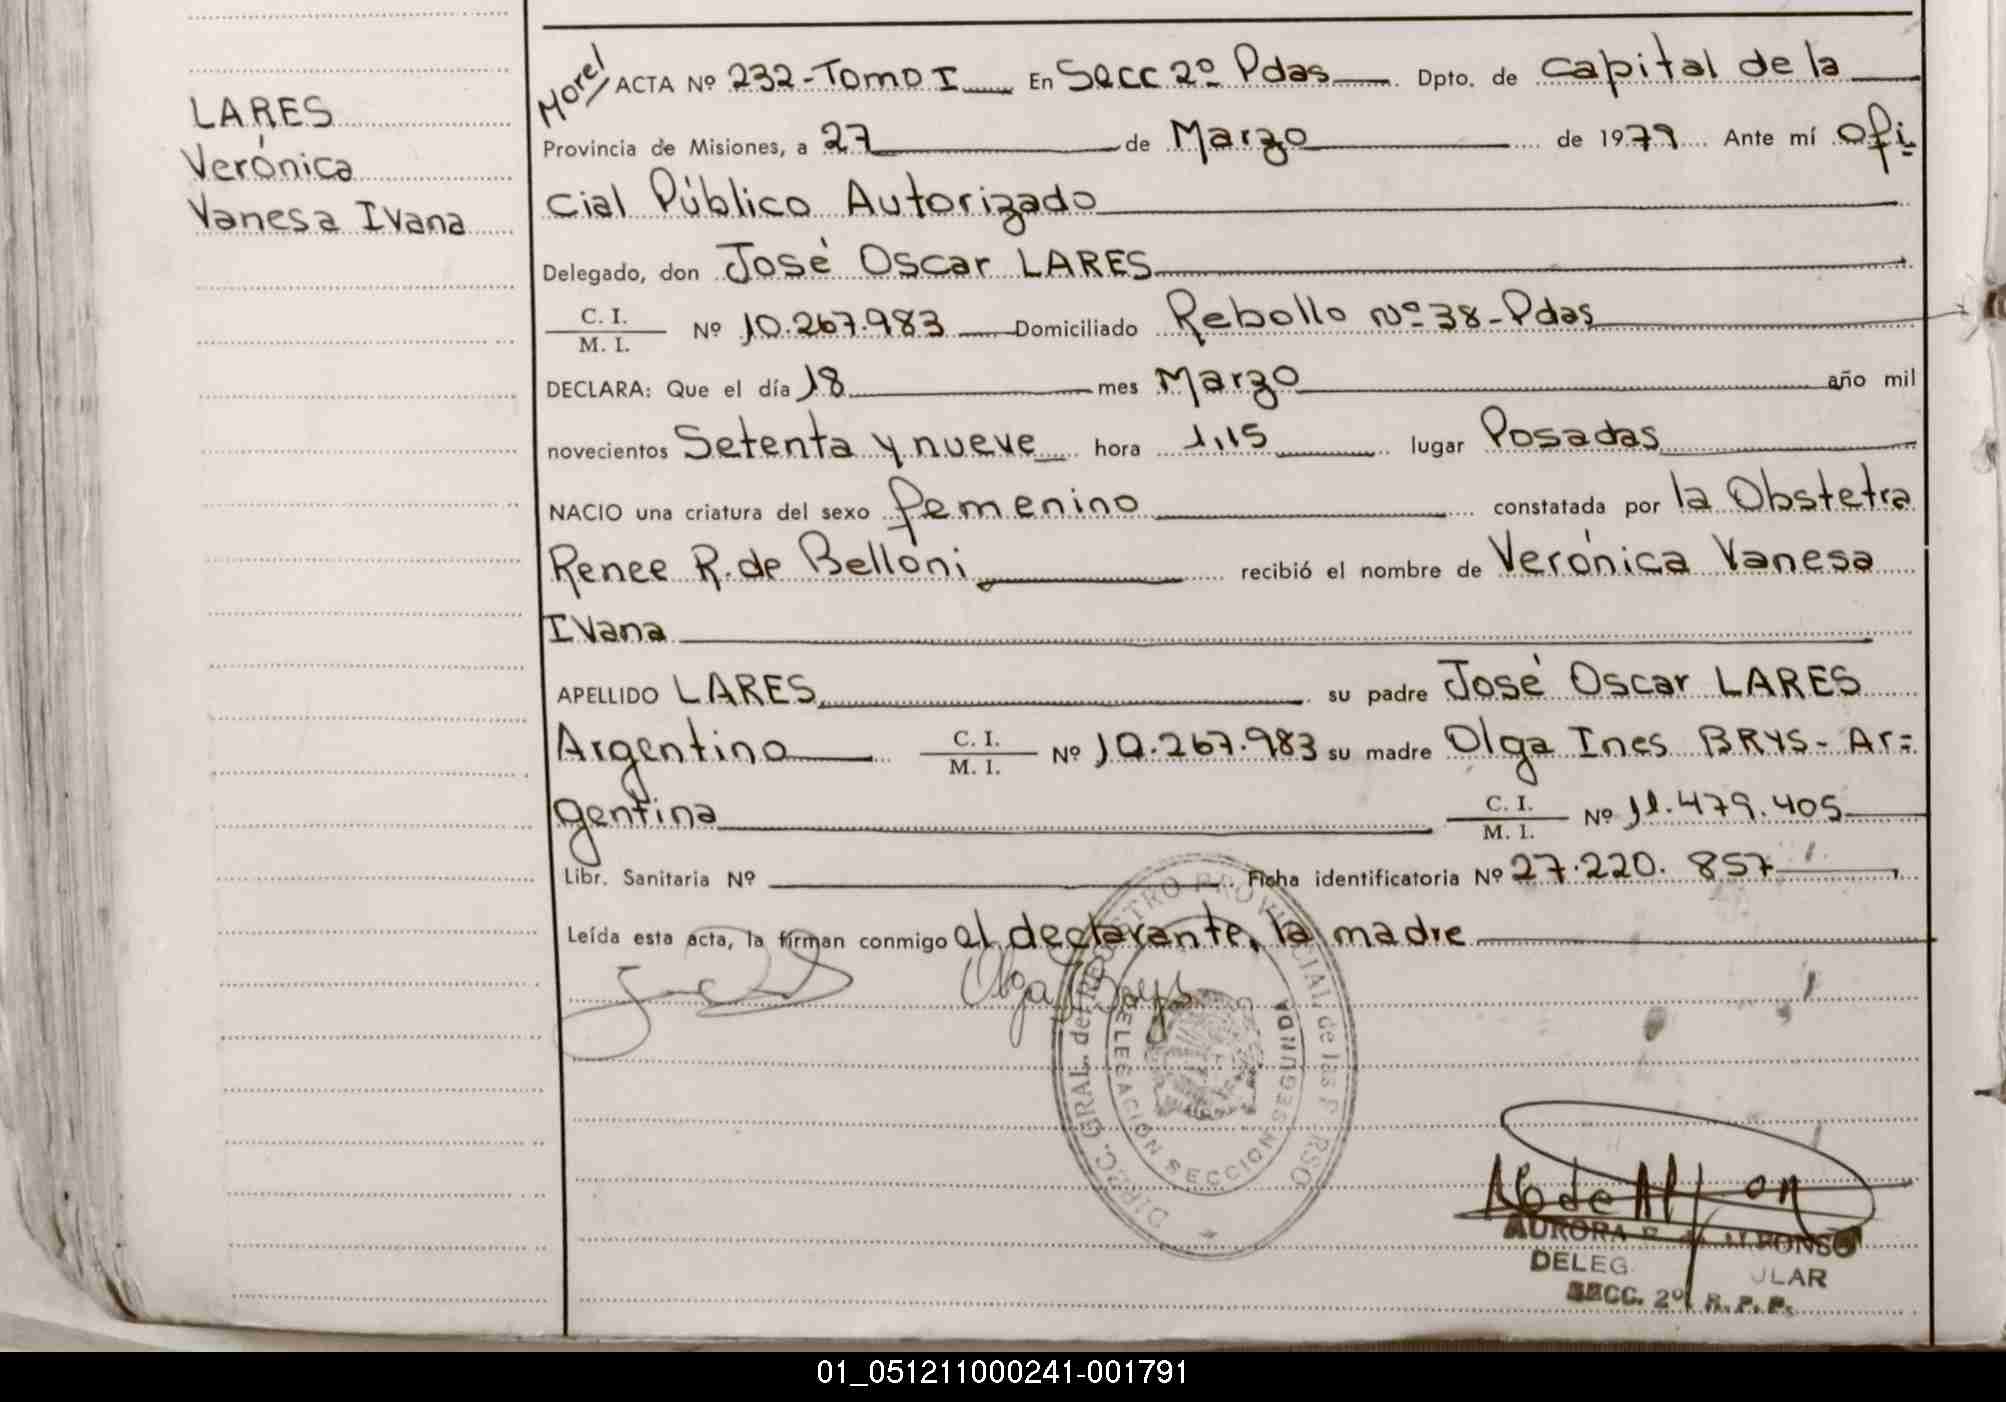 LARES
Verónica
Vanesa Ivana
Morel
ACTA Nº 232-Tomo I En Secc 2º Pdas Dpto. de Capital de la
Provincia de Misiones, a 27 de Marzo de 1979 Ante mí Ofi-
cial Público Autorizado
Delegado, don José Oscar LARES
C. I.
M. I. Nº 10.267.983 Domiciliado Rebollo Nº 38-Pdas
DECLARA: Que el día 18 mes Marzo año mil
novecientos Setenta y nueve hora 1,15 lugar Posadas
NACIO una criatura del sexo femenino constatada por la Obstetra
Renee R. de Belloni recibió el nombre de Verónica Vanesa
Ivana
APELLIDO LARES su padre José Oscar LARES
Argentino C. I.
M. I. Nº 10.267.983 su madre Olga Ines BRYS- Ar=
gentina C. I.
M. I. Nº 11.479.405
Libr. Sanitaria Nº Ficha identificatoria Nº 27.220.857
Leída esta acta, la firman conmigo el declarante, la madre
Olga Brys
DIREC. GRAL. del REGISTRO PROVINCIAL de las PERSO
DELEGACION SECCION SEGUNDA
AURORA ALFONSO
DELEG ULAR
SECC. 2º R.P.P.
01_051211000241-001791